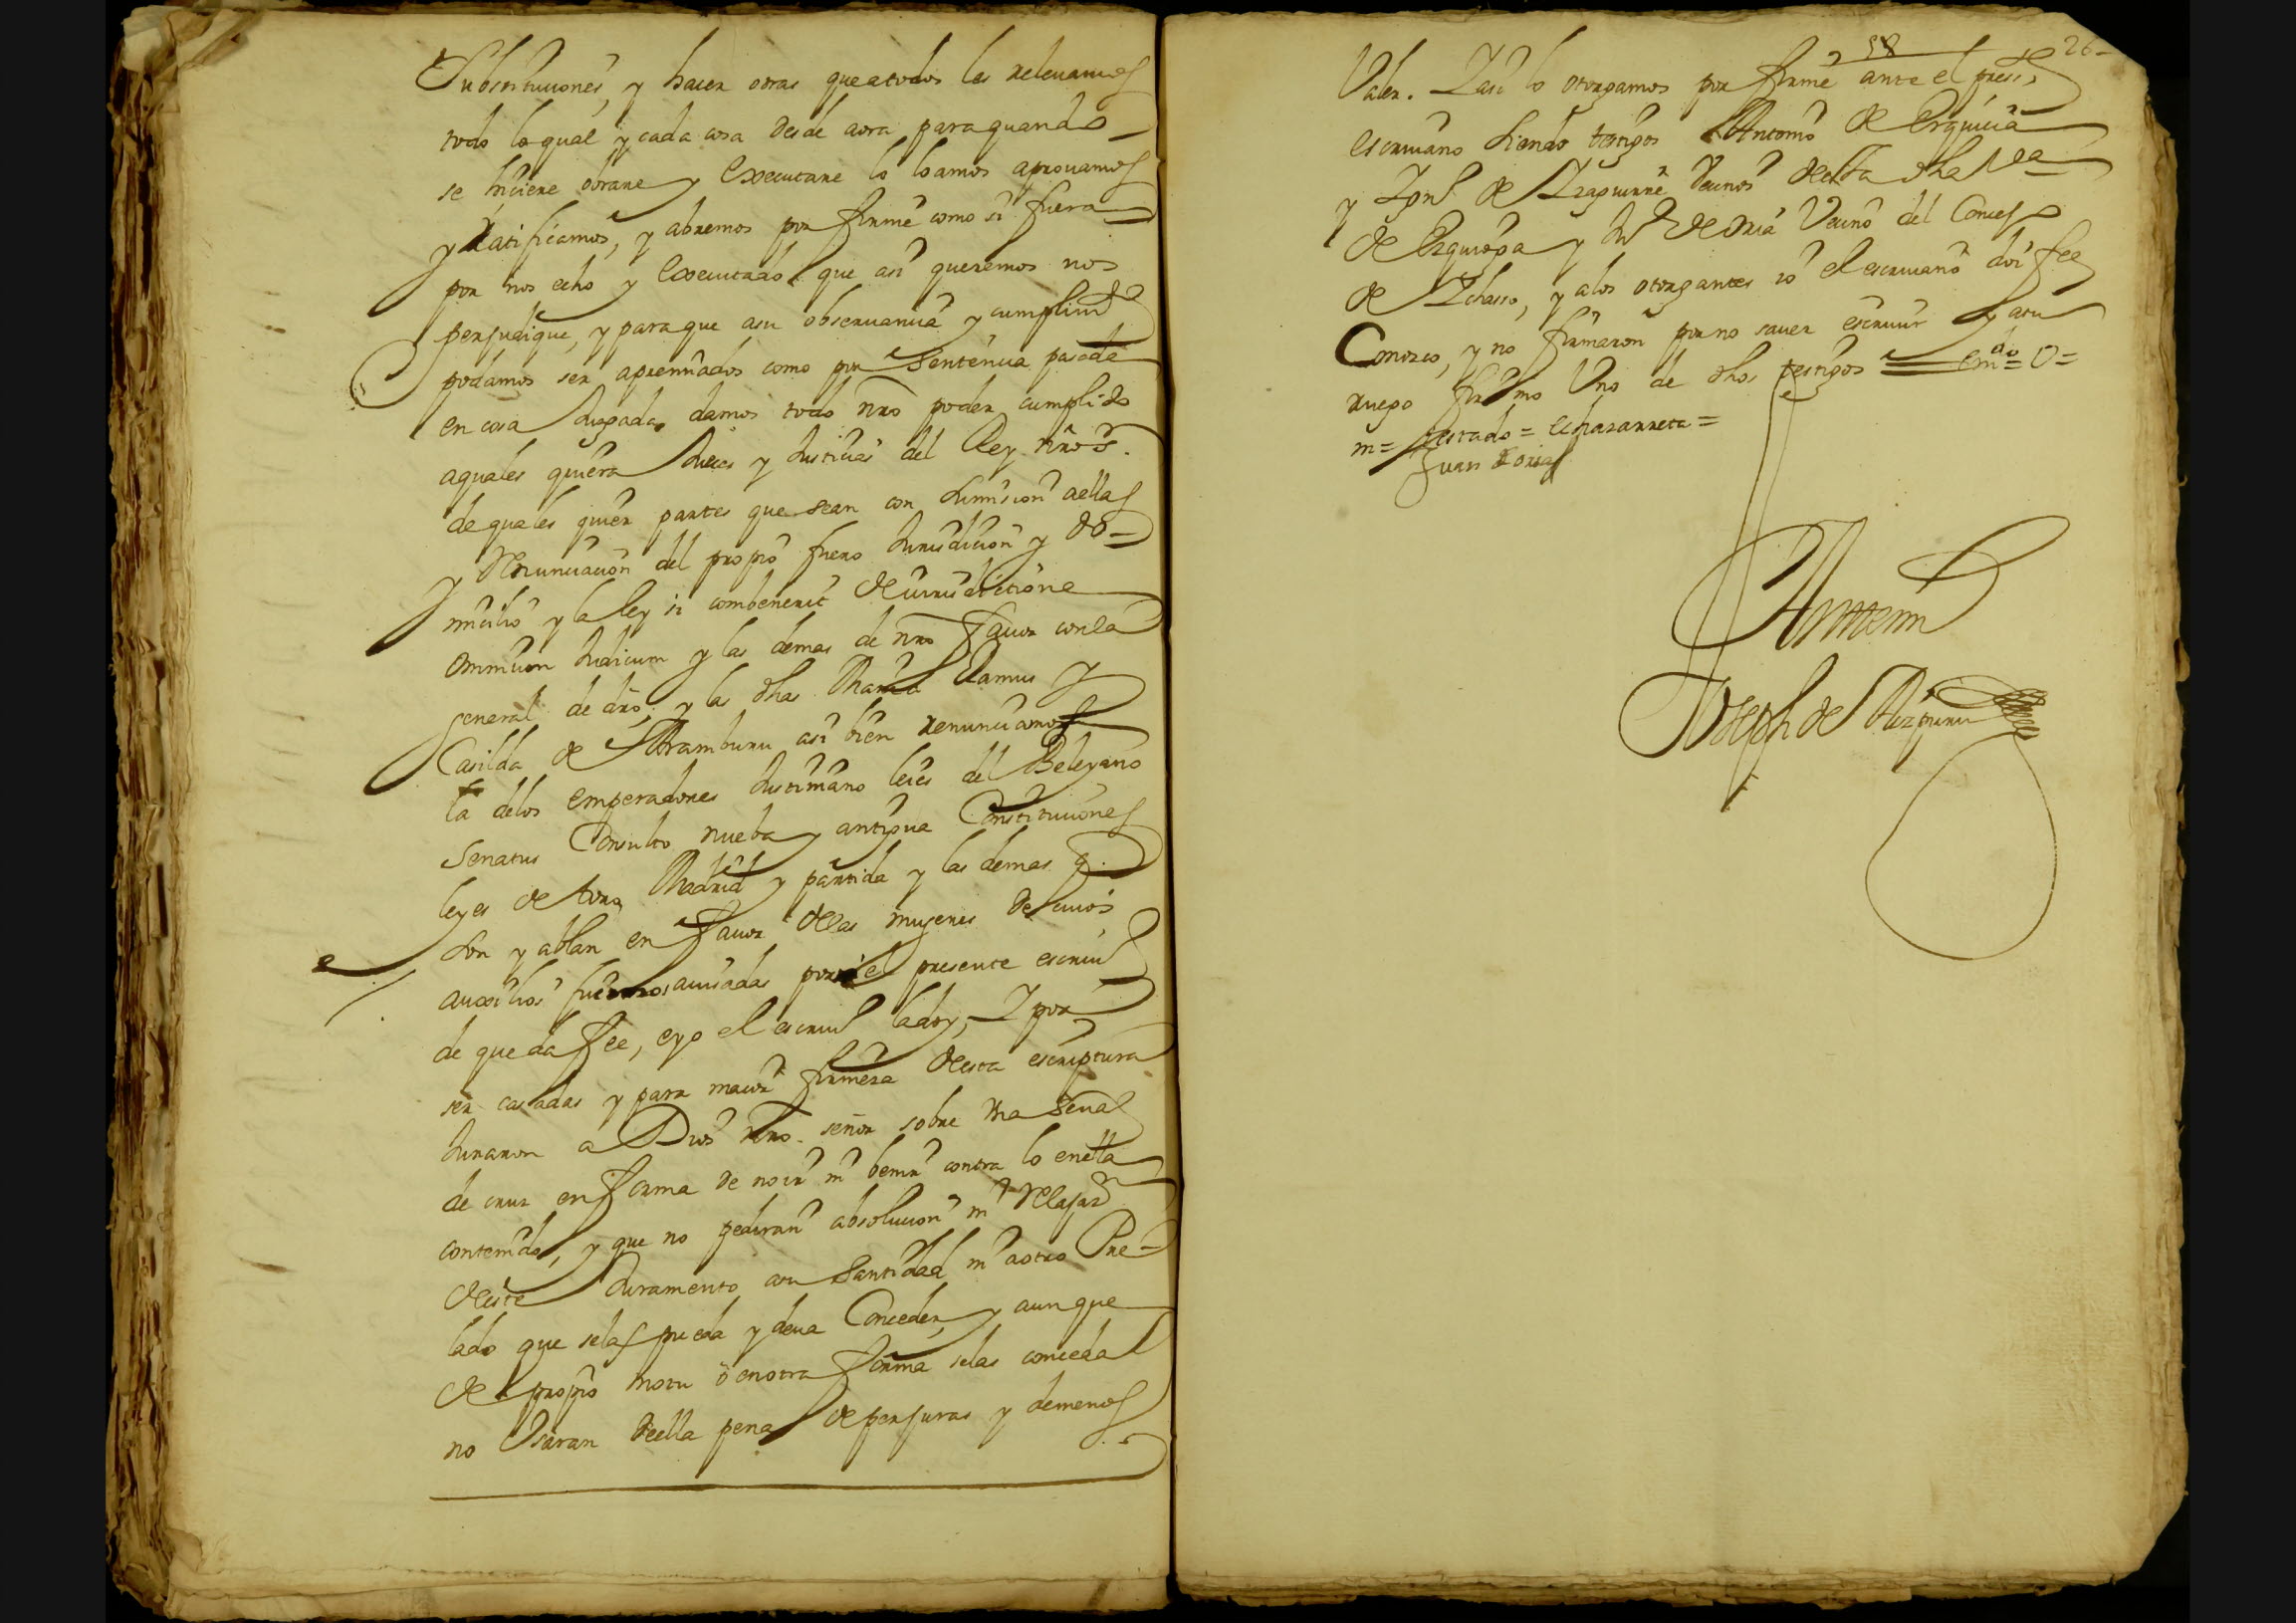 Substituciones, y hacer otras que a todos les relevamos
todo lo qual y cada cosa desde aora para quando
se hiciere obrare y executare lo loamos aprovamos
y Ratificamos, y abremos por firme como si fuera
por nos echo y executado que asi queremos nos
perjudique, y para que a su observancia y cumplimto
podamos ser apremiados como por sentencia pasada
en cosa Juzgada damos todo nro poder cumplido
a quales quiera Jueces y Justicias del Rey nro sr.
de quales quier partes que sean con sumision a ellas
y Renunciacion del propio fuero Jurisdicion y do-
micilio y la ley si combenerit de iurisdictione
omnium Judicum y las demas de nro favor con la
general de dro, y las dhas Maria Ramus y
Casilda de Aramburu asi bien renunciamos
la de los emperadores Justiniano leies del Beleyano
Senatus Consulto nueba y antigua Constituciones
leyes de toro Madrid y partida y las demas q.
son y ablan en favor de las mugeres de cuios
auxilios fuimos avisadas por el presente escriuo
de que da fee, e yo el escriuo la doy, Y por
ser casadas y para maior firmeza desta escriptura
Juraron a Dios nro. señor sobre Una señal
de cruz en forma de no ir ni benir contra lo en ella
contenido, y que no pediran absolucion ni Relajaon
deste Juramento a su Santidad ni a otro Pre-
lado que selas pueda y deva Conceder, y aun que
de propio motu o en otra forma selas conceda
no Usaran de ella pena de perjuras y de menos
58 26-
Valer. Y asi lo otorgamos por firme ante el presste
escriuano siendo testigos Antonio de Erquicia
y Ygno de Yzaguirre Vecinos desta dha Va
de Ezquioga y Ju de Oria Vecino del Concejo
de Ychasso, y a los otorgantes io el escriuano doi fee
Conozco, y no firmaron por no saver escriuir y a su
ruego firmo Uno de dhos testigos = emdo = O =
m = testado = echazarreta =
Juan de Oria
Ante mi
Joseph de Aizpuru